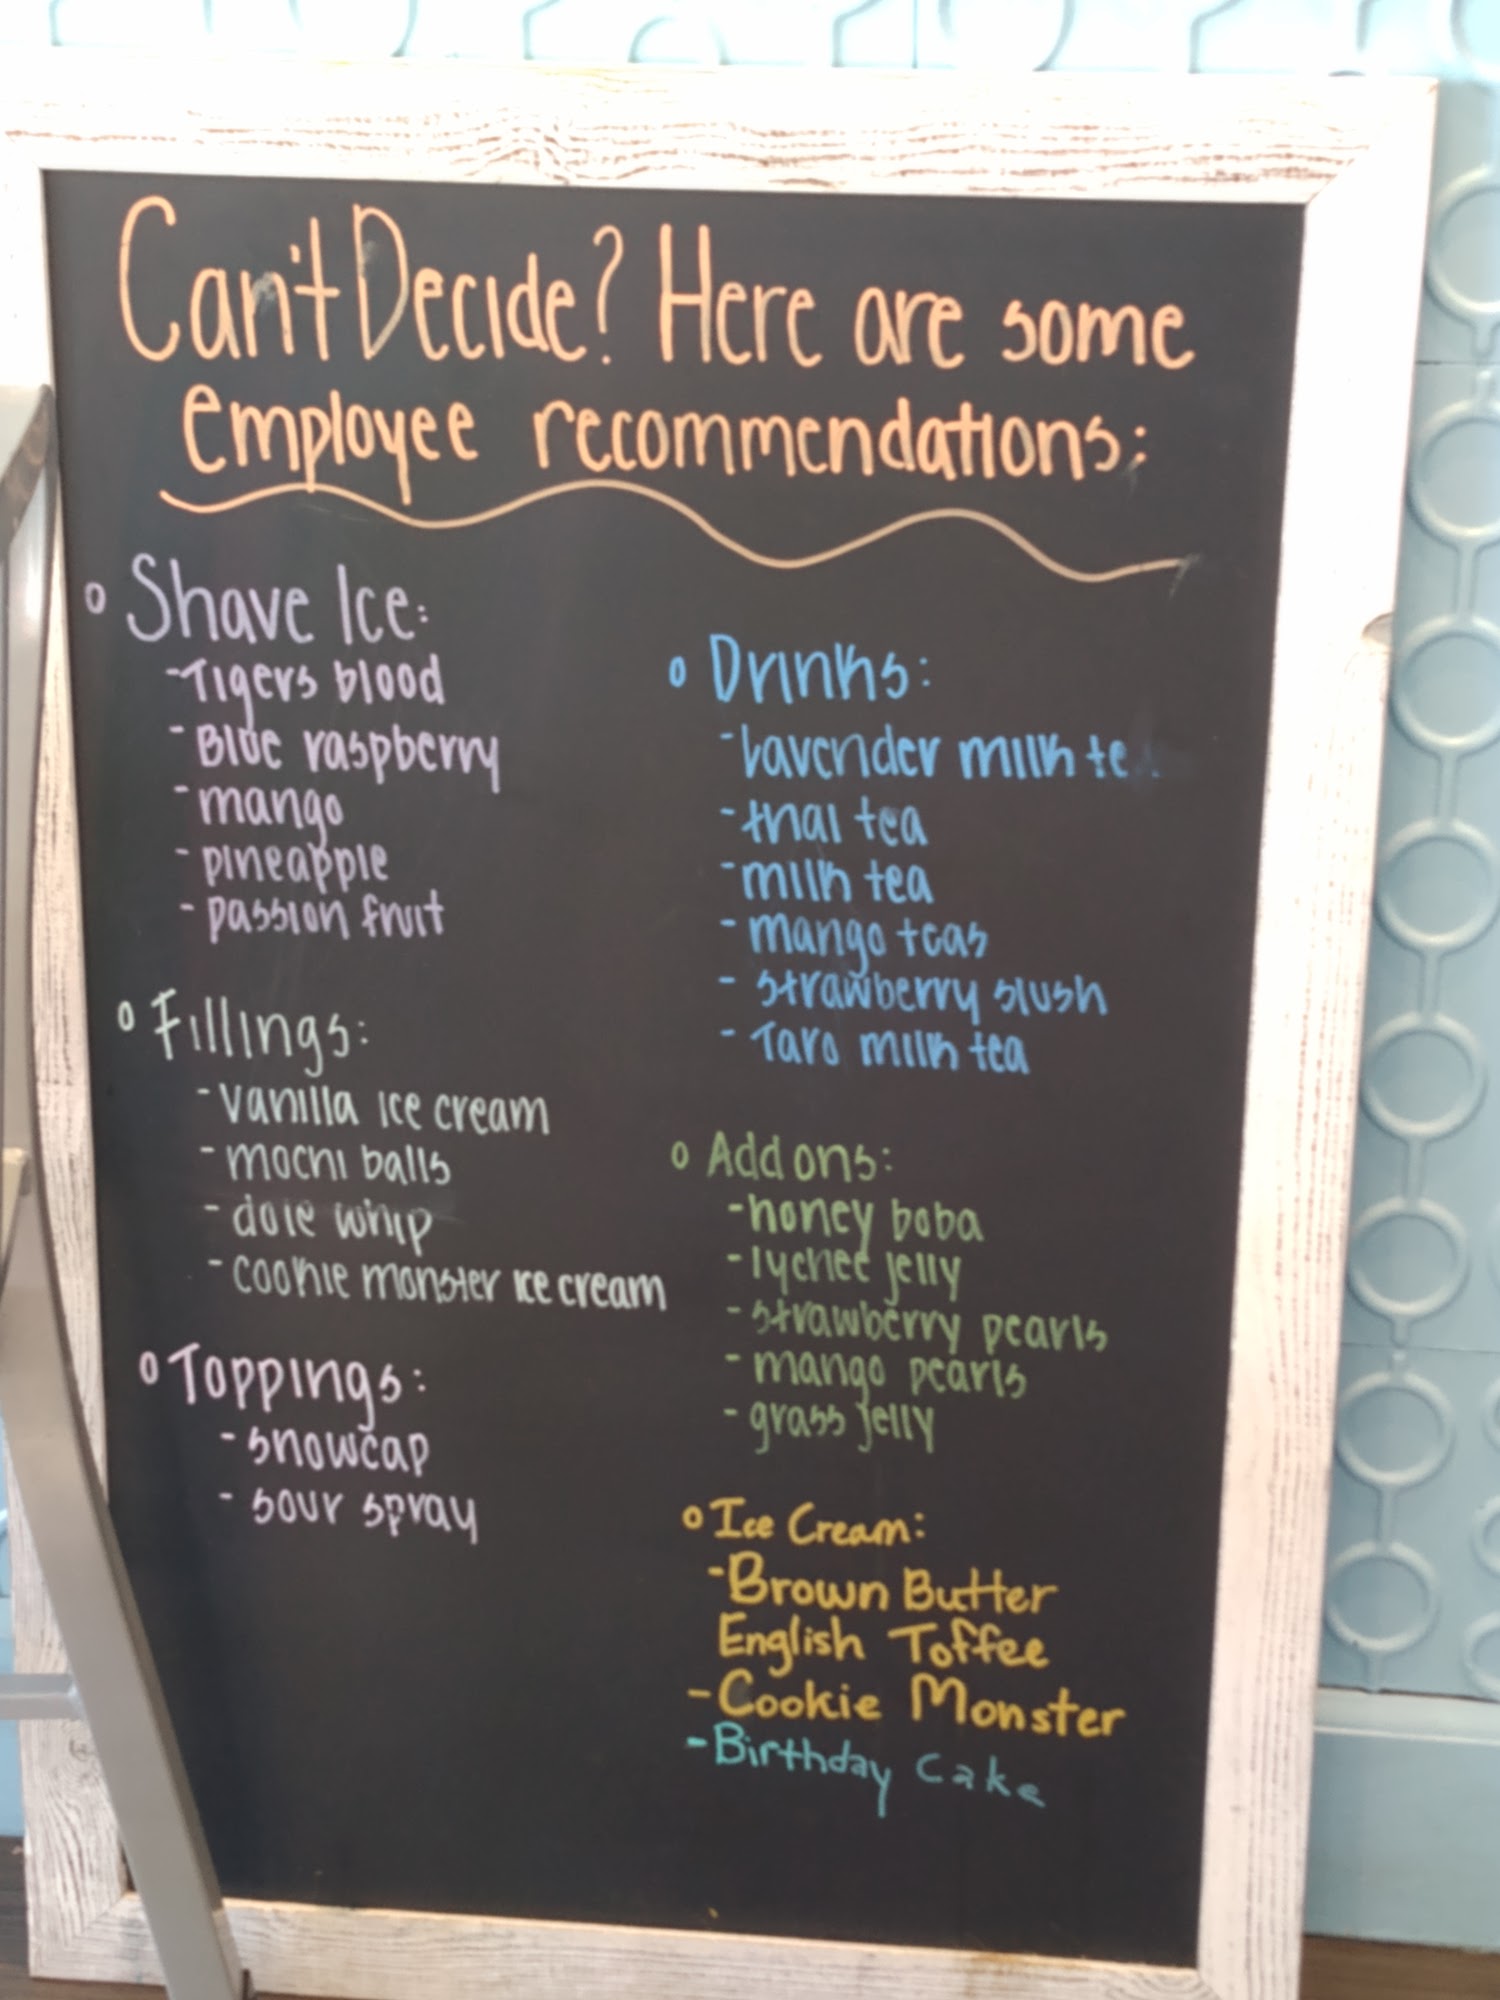 Can't Decide? Here are some
employee recommendations:
o Shave Ice:
- Tigers blood
- Blue raspberry
- mango
- pineapple
- passion fruit
o Fillings:
- vanilla ice cream
- mochi balls
- dole whip
- cookie monster ice cream
o Toppings:
- snowcap
- sour spray
o Drinks:
- lavender milk te
- thai tea
- milk tea
- mango teas
- strawberry slush
- Taro milk tea
o Add ons:
- honey boba
- lychee jelly
- strawberry pearls
- mango pearls
- grass jelly
o Ice Cream:
- Brown Butter
English Toffee
- Cookie Monster
- Birthday Cake